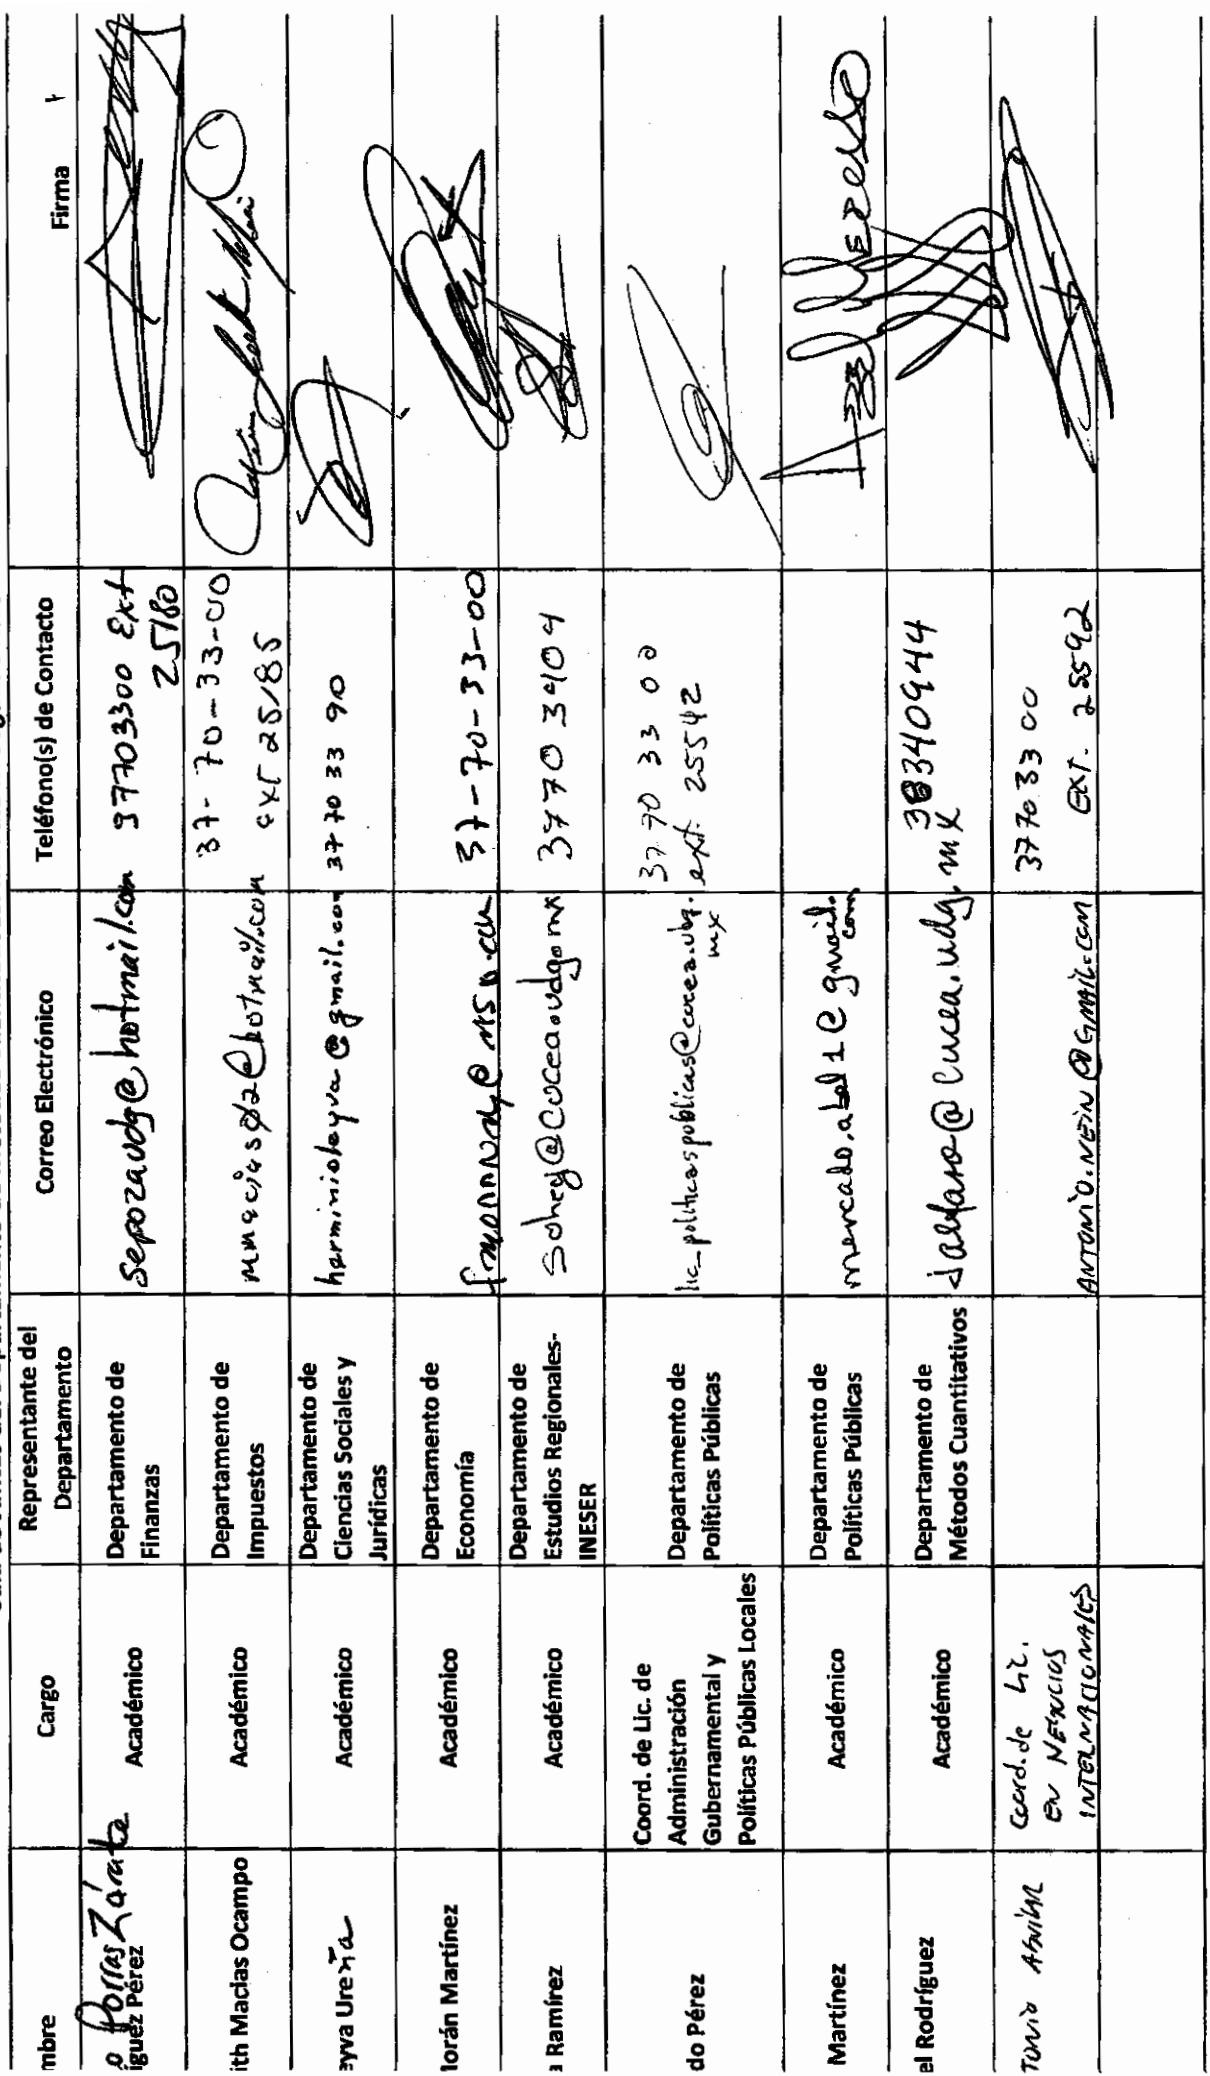 mbre
Cargo
Representante del
Departamento
Correo Electrónico
Teléfono(s) de Contacto
Firma
Porras Zárate
iguez Pérez
Académico
Departamento de
Finanzas
sepozaudg@hotmail.com
37703300 Ext
25180
ith Macias Ocampo
Académico
Departamento de
Impuestos
mmacias02@hotmail.com
37-70-33-00
ext 25185
eyva Ureña
Académico
Departamento de
Ciencias Sociales y
Jurídicas
herminioleyva@gmail.com
3770 33 90
lorán Martínez
Académico
Departamento de
Economía
37-70-33-00
a Ramírez
Académico
Departamento de
Estudios Regionales-
INESER
3770 3404
do Pérez
Coord. de Lic. de
Administración
Gubernamental y
Políticas Públicas Locales
Departamento de
Políticas Públicas
lic_politicaspublicas@cucea.udg.
mx
37 70 33 00
ext. 25542
Martínez
Académico
Departamento de
Políticas Públicas
mercado.abel1@gmail.
com
el Rodríguez
Académico
Departamento de
Métodos Cuantitativos
jalfaro@cucea.udg.mx
38340944
TONIO AGUILAR
Coord. de Lic.
EN NEGOCIOS
INTERNACIONALES
ANTONIO.NEIN@GMAIL.COM
3770 33 00
EXT. 25592